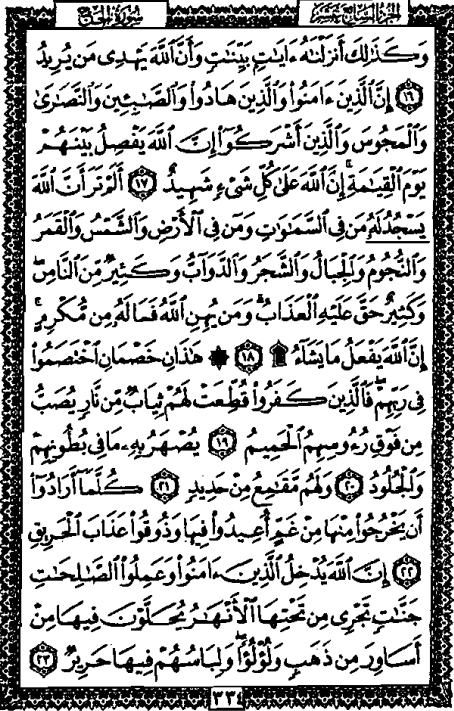 الجزء السابع عشر
سورة الحج
وَكَذَٰلِكَ أَنزَلْنَٰهُ ءَايَٰتٍۭ بَيِّنَٰتٍ وَأَنَّ ٱللَّهَ يَهْدِى مَن يُرِيدُ
١٦ إِنَّ ٱلَّذِينَ ءَامَنُوا۟ وَٱلَّذِينَ هَادُوا۟ وَٱلصَّٰبِـِٔينَ وَٱلنَّصَٰرَىٰ
وَٱلْمَجُوسَ وَٱلَّذِينَ أَشْرَكُوٓا۟ إِنَّ ٱللَّهَ يَفْصِلُ بَيْنَهُمْ
يَوْمَ ٱلْقِيَٰمَةِ ۚ إِنَّ ٱللَّهَ عَلَىٰ كُلِّ شَىْءٍ شَهِيدٌ ١٧ أَلَمْ تَرَ أَنَّ ٱللَّهَ
يَسْجُدُ لَهُۥ مَن فِى ٱلسَّمَٰوَٰتِ وَمَن فِى ٱلْأَرْضِ وَٱلشَّمْسُ وَٱلْقَمَرُ
وَٱلنُّجُومُ وَٱلْجِبَالُ وَٱلشَّجَرُ وَٱلدَّوَآبُّ وَكَثِيرٌ مِّنَ ٱلنَّاسِ ۖ
وَكَثِيرٌ حَقَّ عَلَيْهِ ٱلْعَذَابُ ۗ وَمَن يُهِنِ ٱللَّهُ فَمَا لَهُۥ مِن مُّكْرِمٍ ۚ
إِنَّ ٱللَّهَ يَفْعَلُ مَا يَشَآءُ ۩ ١٨ ۞ هَٰذَانِ خَصْمَانِ ٱخْتَصَمُوا۟
فِى رَبِّهِمْ ۖ فَٱلَّذِينَ كَفَرُوا۟ قُطِّعَتْ لَهُمْ ثِيَابٌ مِّن نَّارٍ يُصَبُّ
مِن فَوْقِ رُءُوسِهِمُ ٱلْحَمِيمُ ١٩ يُصْهَرُ بِهِۦ مَا فِى بُطُونِهِمْ
وَٱلْجُلُودُ ٢٠ وَلَهُم مَّقَٰمِعُ مِنْ حَدِيدٍ ٢١ كُلَّمَآ أَرَادُوٓا۟
أَن يَخْرُجُوا۟ مِنْهَا مِنْ غَمٍّ أُعِيدُوا۟ فِيهَا وَذُوقُوا۟ عَذَابَ ٱلْحَرِيقِ
٢٢ إِنَّ ٱللَّهَ يُدْخِلُ ٱلَّذِينَ ءَامَنُوا۟ وَعَمِلُوا۟ ٱلصَّٰلِحَٰتِ
جَنَّٰتٍ تَجْرِى مِن تَحْتِهَا ٱلْأَنْهَٰرُ يُحَلَّوْنَ فِيهَا مِنْ
أَسَاوِرَ مِن ذَهَبٍ وَلُؤْلُؤًا ۖ وَلِبَاسُهُمْ فِيهَا حَرِيرٌ ٢٣
٣٣٤